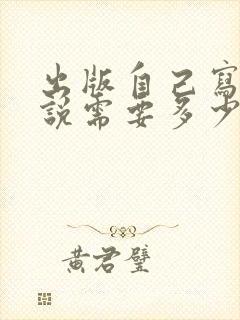 出版自己寫
說需要多少
黃君璧